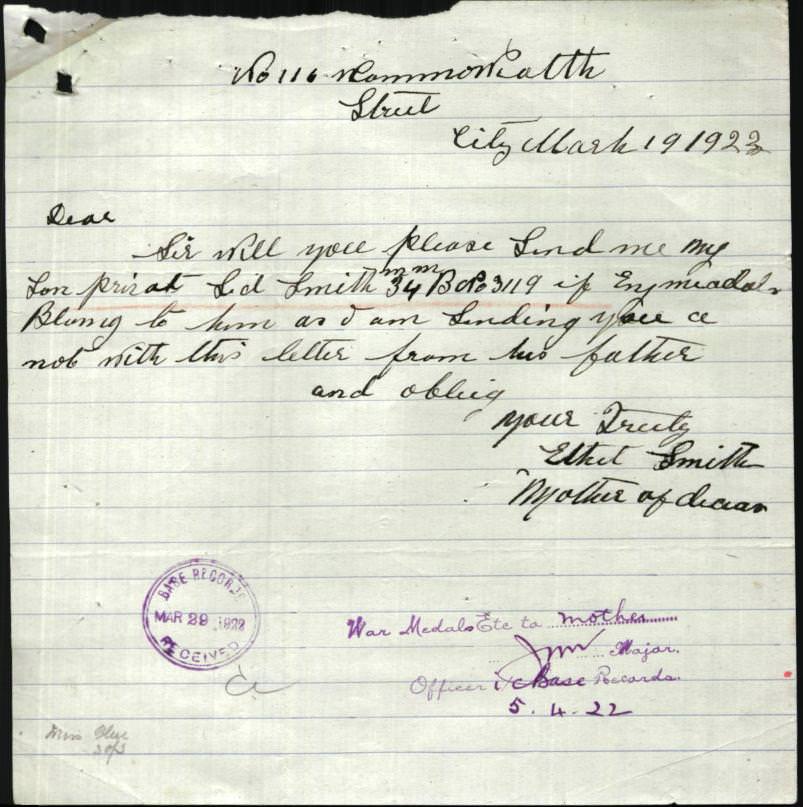 No 116 Commonwealth
Street
City March 19 1922
Dear
Sir will you please Send me my
Son privat Sid Smith 34 B No 3119 if Eny miadals
Blong to him as I am Sending you a
not with this letter from his father
and oblieg
your Truely
Ethel Smith
Mother of
BASE RECORDS
MAR 29 1922
RECEIVED
War Medals Etc to mother
Major.
Officer i/c Base Records.
5.4.22